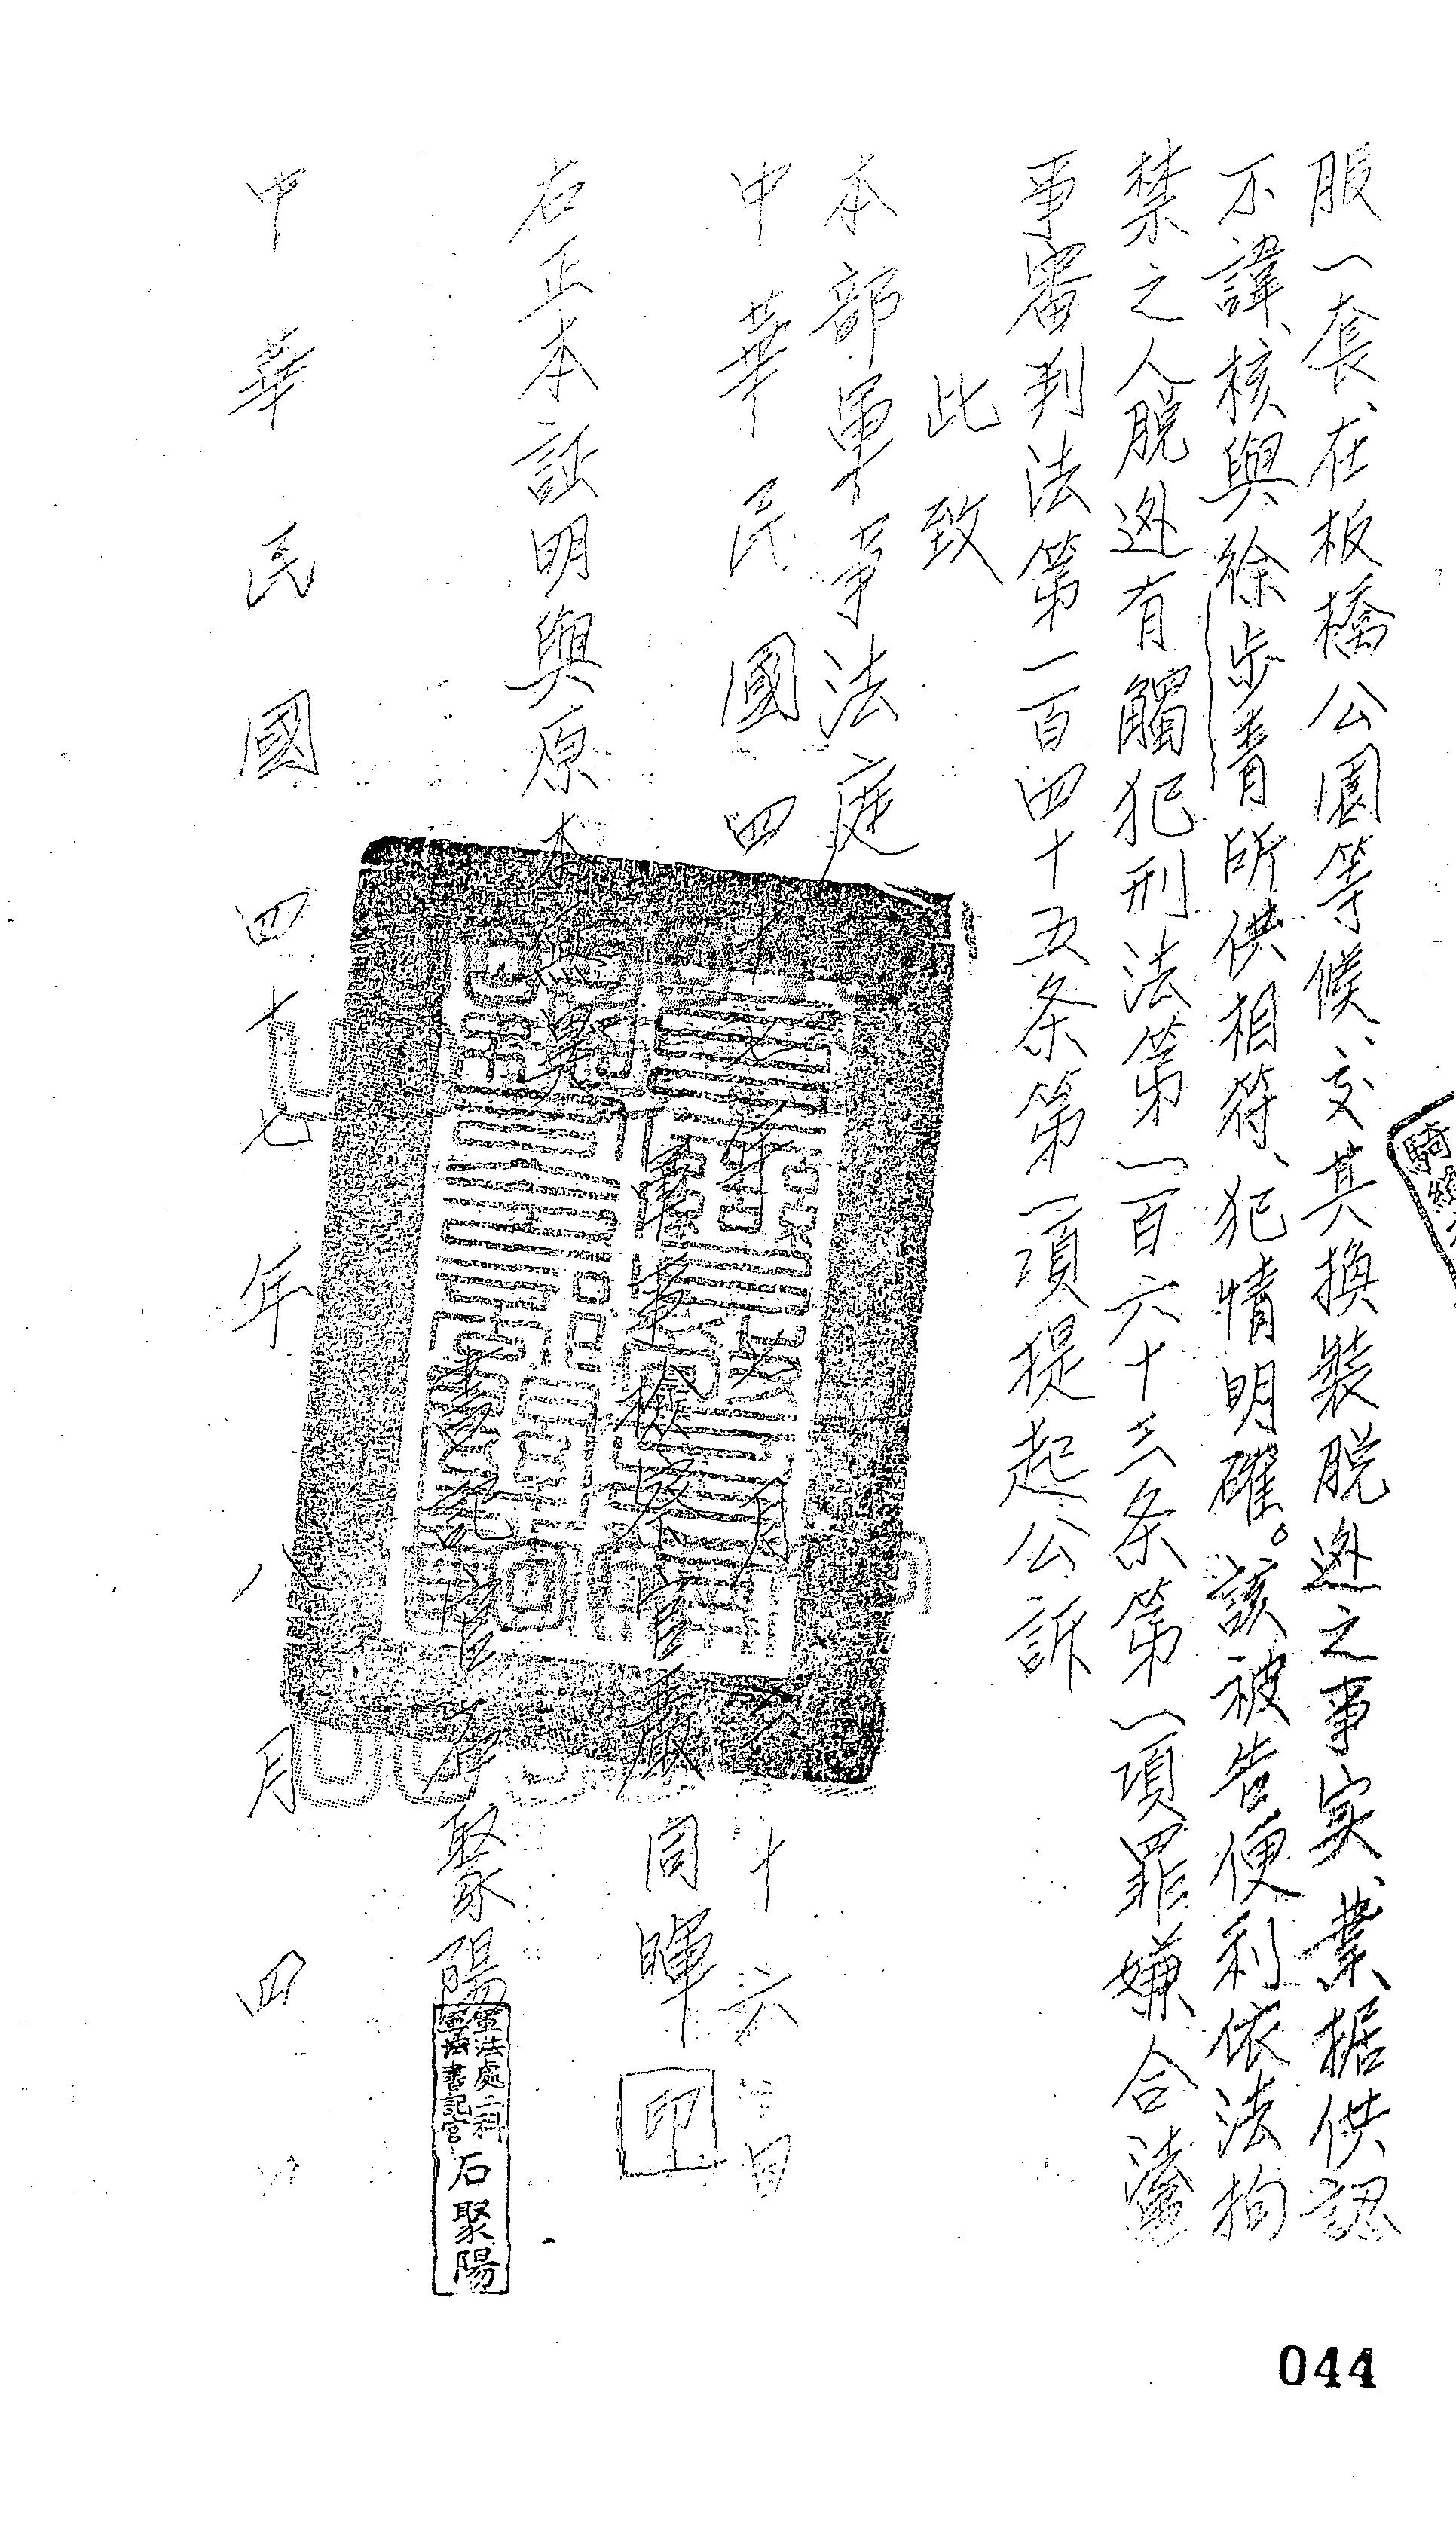 服一套、在板橋公園等候、交其換裝脫逃之事実、業据供認
不諱、核與徐步青所供相符、犯情明確。該被告便利依法拘
禁之人脫逃有觸犯刑法第一百六十三条第一項罪嫌合依軍
事審判法第一百四十五条第一項提起公訴
此致
本部軍事法庭
中華民國四十七年七月二十六日
軍事檢察官嚴同暉 印
右正本証明與原本無異
書記官石聚陽
軍法處二科
軍法書記官 石聚陽
中華民國四十七年八月四
騎縫
044